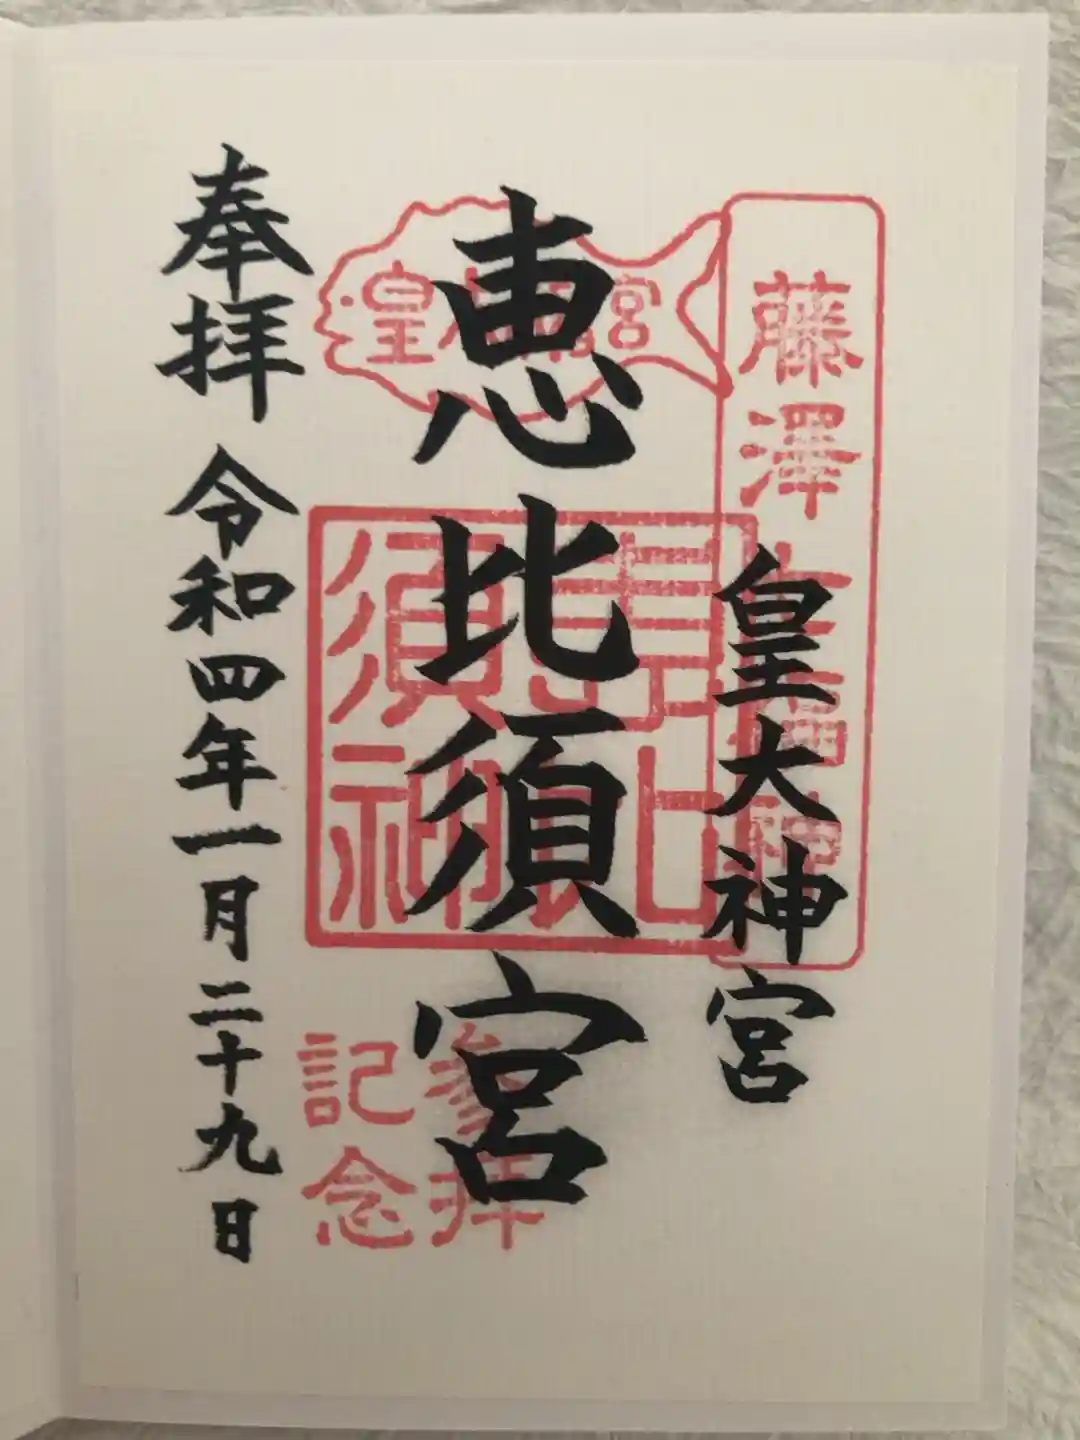 藤澤
皇大神宮
恵比須宮
皇大神宮
参拝
記念
奉拝
令和四年一月二十九日